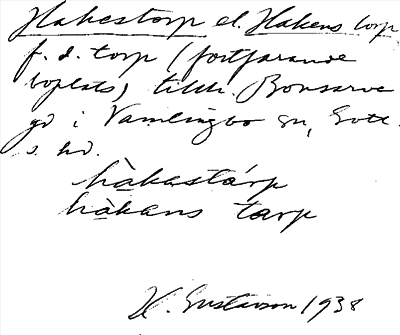 Hakestorp el. Hakens torp,
f. d. torp (fortfarande
boplats) tillh. Bonsarve
gd i Vamlingbo sn, Gotl.
s. hd.
hàkastárp
hàkans tarp
H. Gustavson 1938